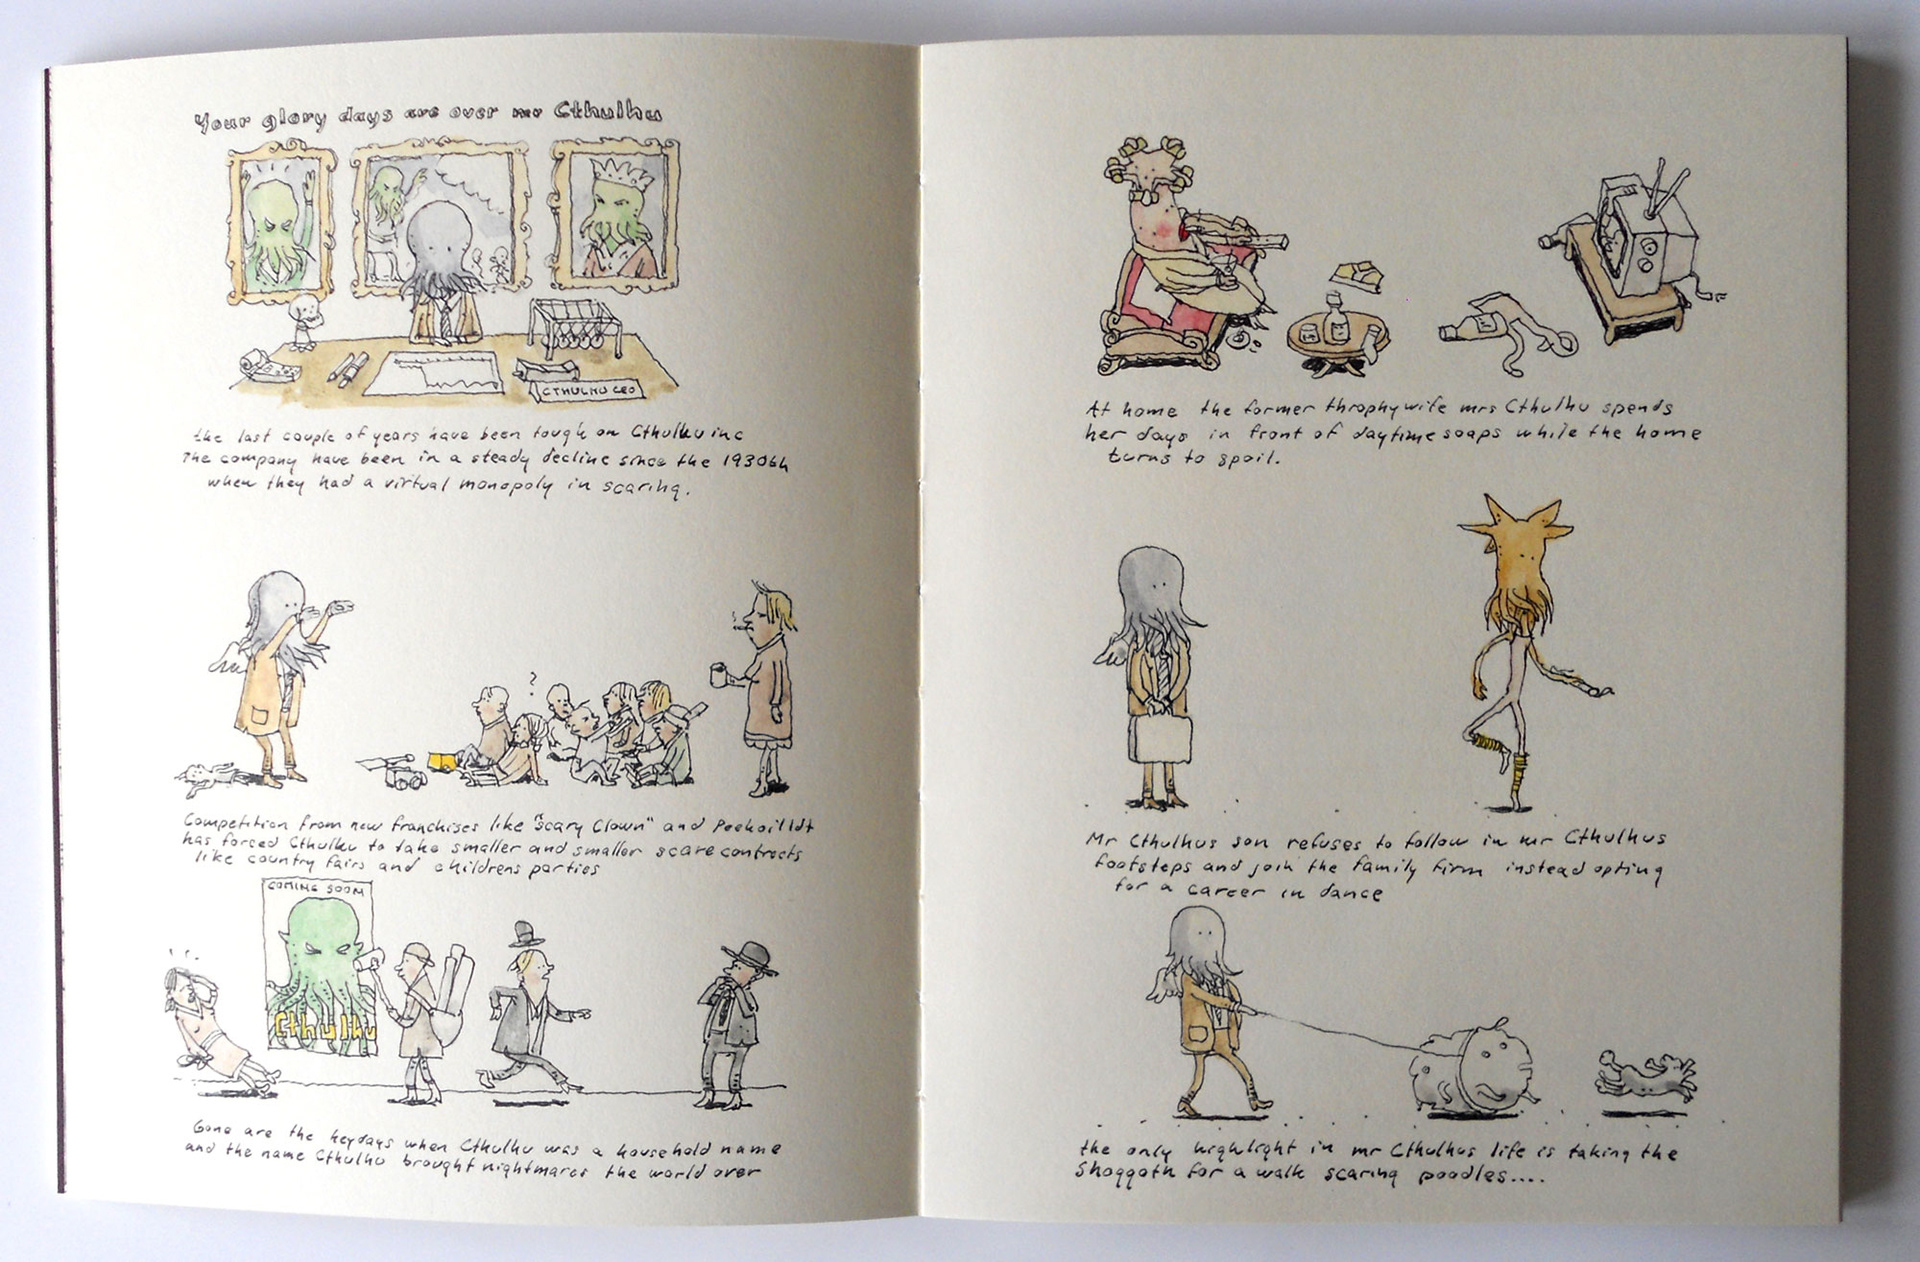 Your glory days are over mr Cthulhu
CTHULHU CEO
the last couple of years have been tough on Cthulhu inc
The company have been in a steady decline since the 1930th
when they had a virtual monopoly in scaring.
?
Competition from new franchises like "Scary Clown" and
has forced Cthulhu to take smaller and smaller scare contracts
like country fairs and childrens parties
COMING SOON
Cthulhu
Gone are the heydays when Cthulhu was a household name
and the name Cthulhu brought nightmares the world over
At home the former throphy wife mrs Cthulhu spends
her days in front of daytime soaps while the home
turns to spoil.
Mr Cthulhus son refuses to follow in mr Cthulhus
footsteps and join the family firm instead opting
for a career in dance
the only highlight in mr Cthulhus life is taking the
Shoggoth for a walk scaring poodles....